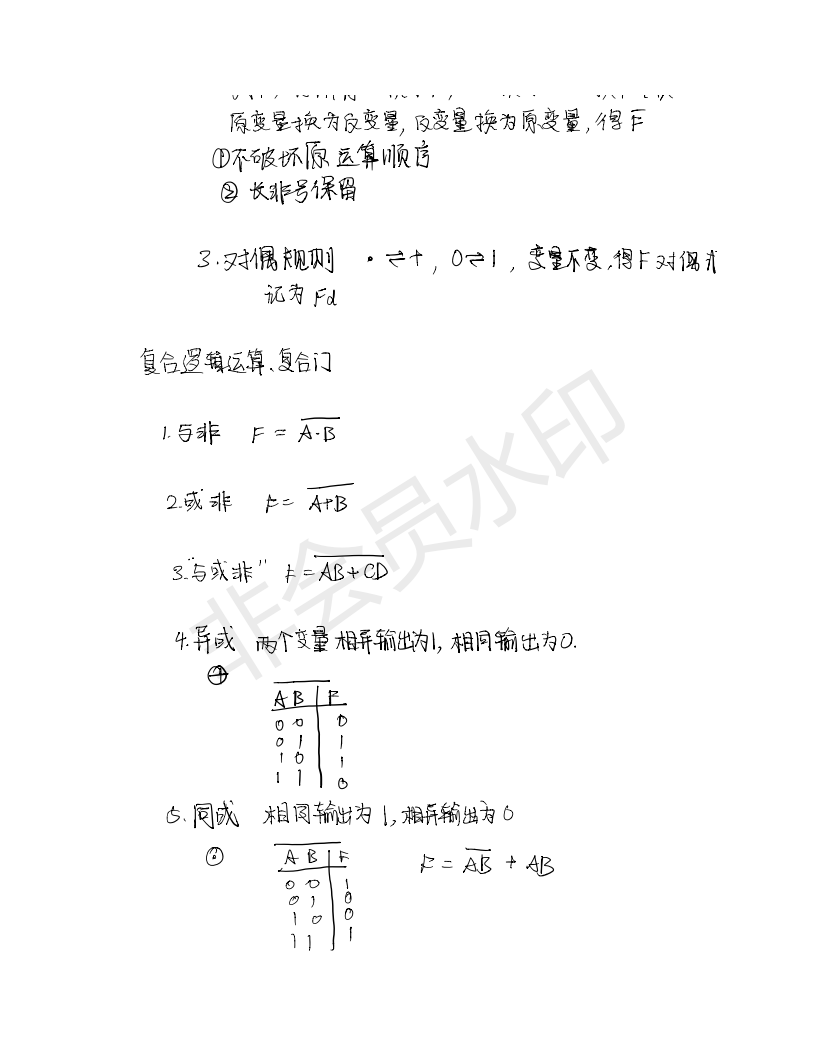 原变量换为反变量, 反变量换为原变量, 得F̅
①不破坏原运算顺序
② 长非号保留
3.对偶规则 · ⇌ +, 0⇌1, 变量不变,得F对偶式
记为 Fd
复合逻辑运算、复合门
1.与非 F = \overline{A·B}
2.或非 F = \overline{A+B}
3."与或非" F = \overline{AB+CD}
4.异或 两个变量相异输出为1, 相同输出为0.
⊕
A B | F
0 0 | 0
0 1 | 1
1 0 | 1
1 1 | 0
5.同或 相同输出为1,相异输出为0
⊙
A B | F F = \overline{AB} + AB
0 0 | 1
0 1 | 0
1 0 | 0
1 1 | 1
非会员水印